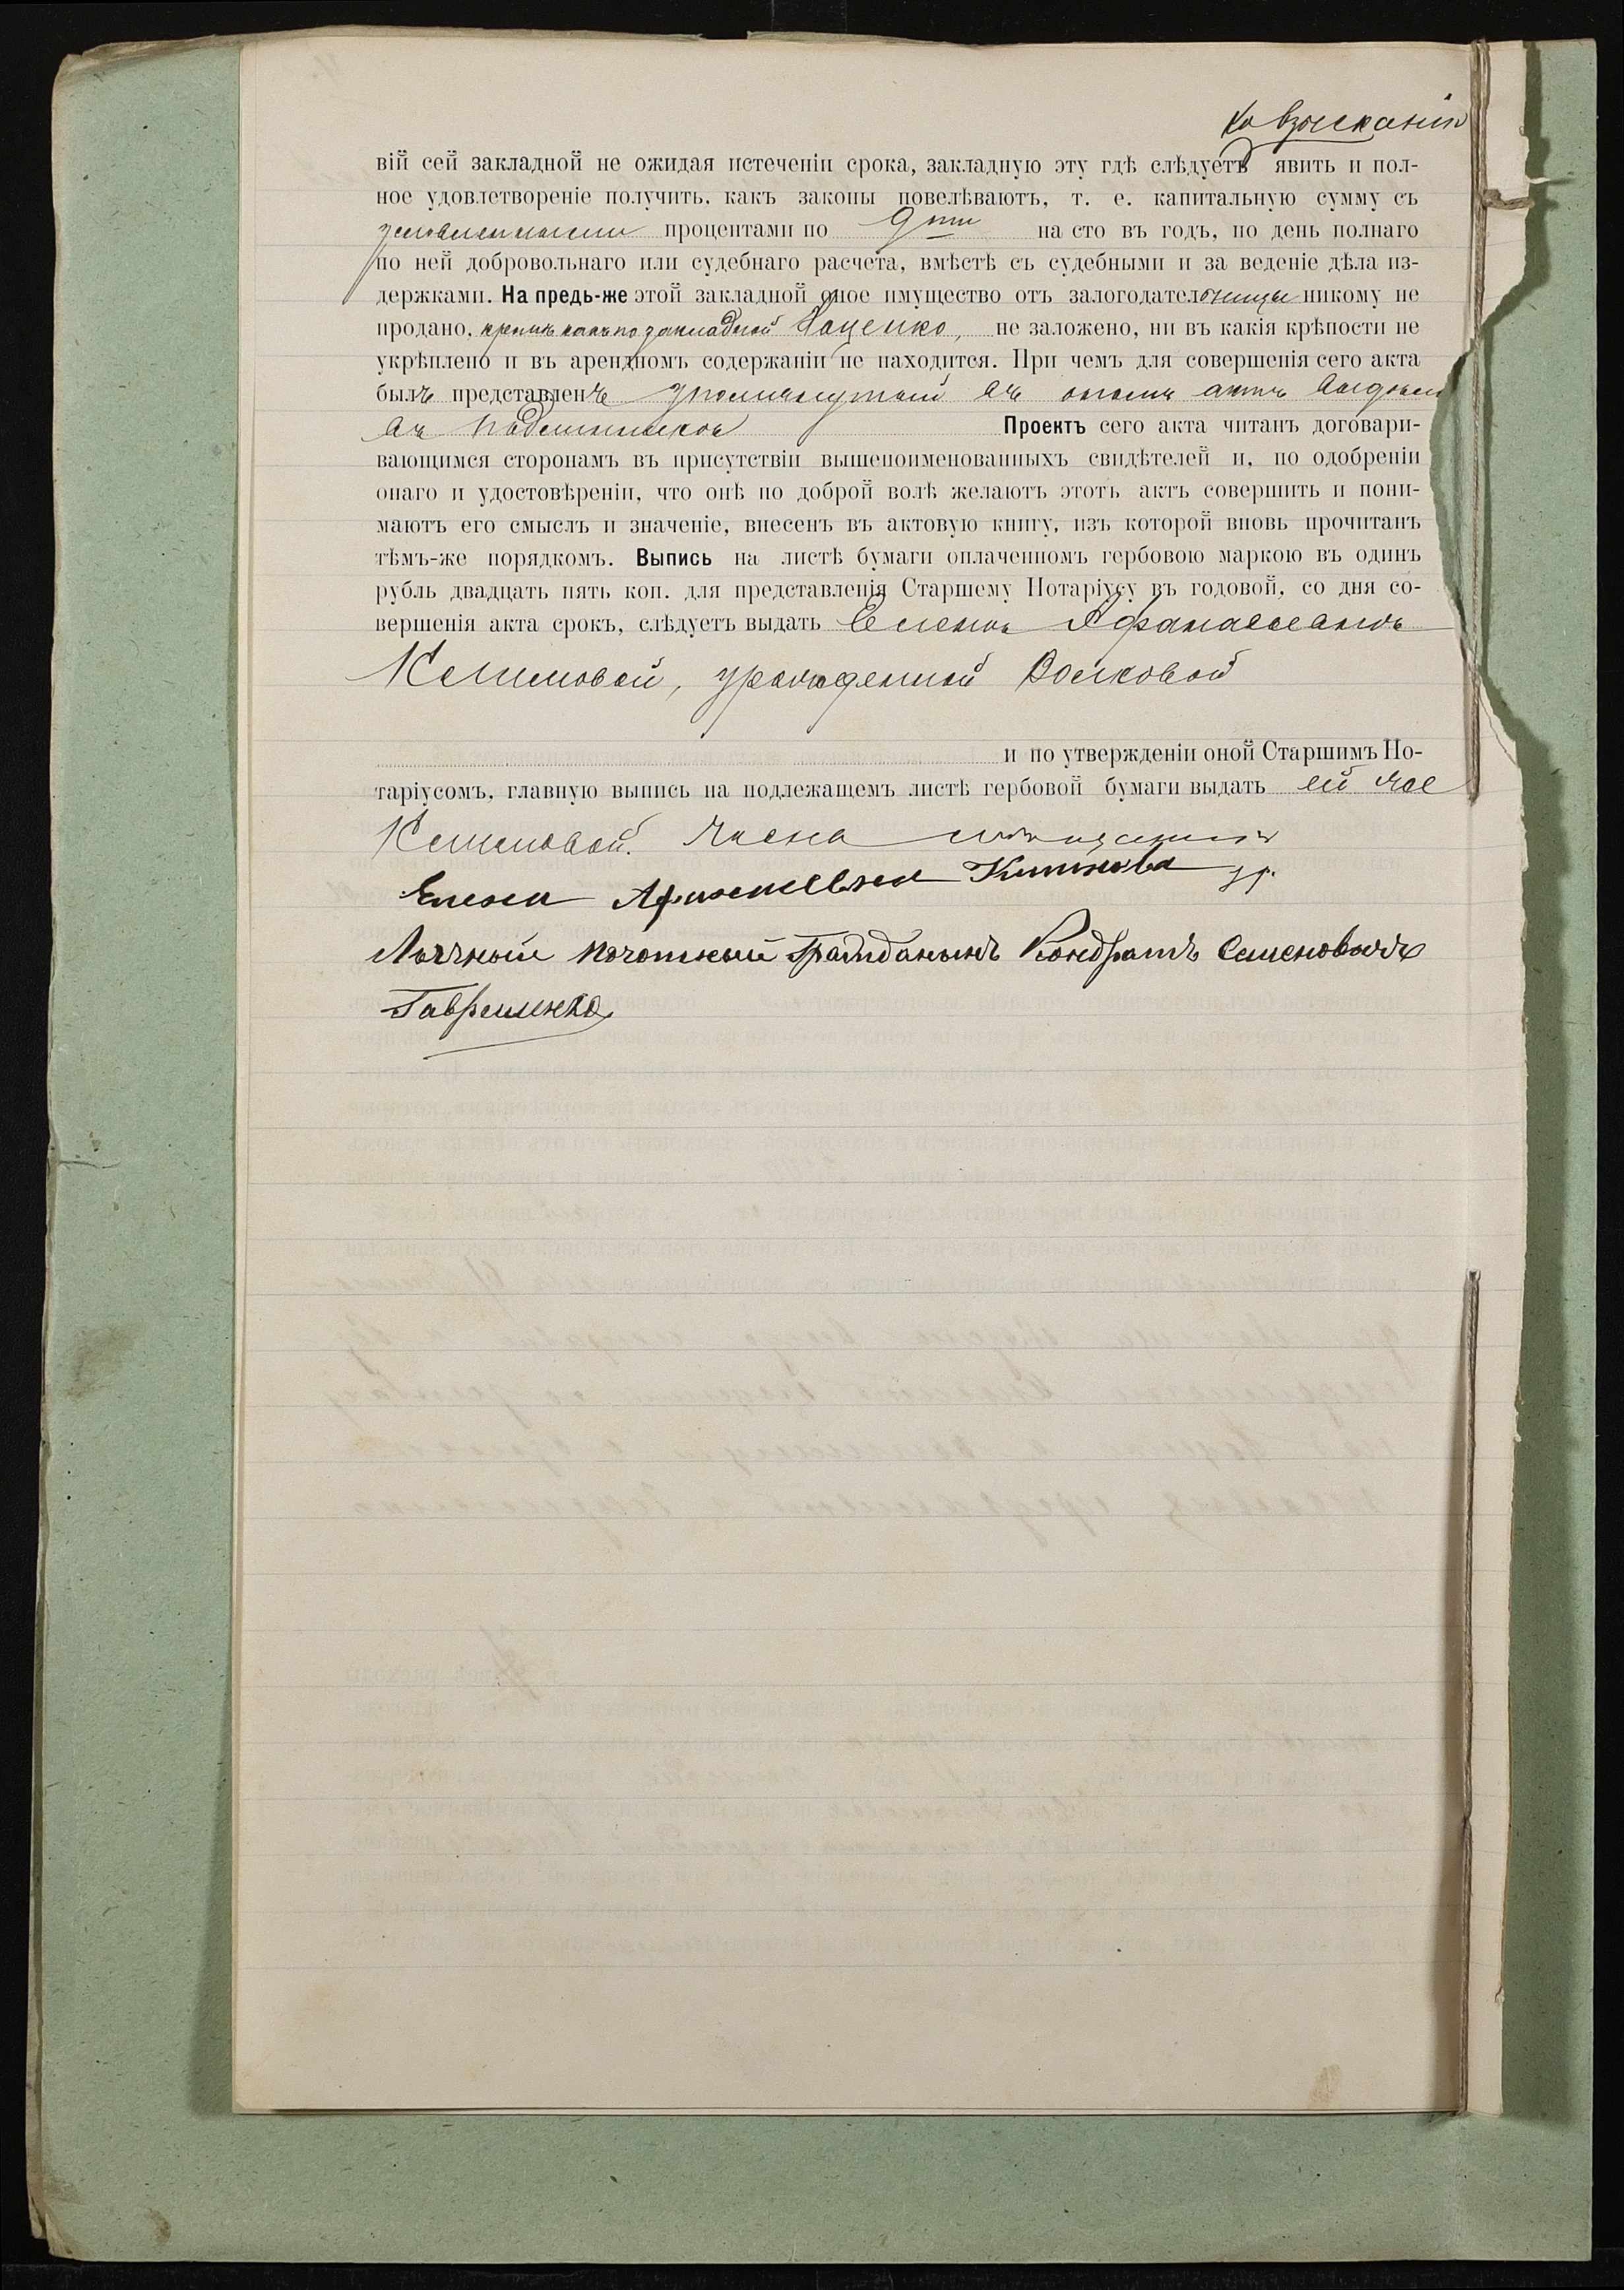 ко взысканію
вій сей закладной не ожидая истеченіи срока, закладную эту гдѣ слѣдуетъ явить и пол-
ное удовлетвореніе получить, какъ законы повелѣваютъ, т. е. капитальную сумму съ
условленными процентами по 9ти на сто въ годъ, по день полнаго
по ней добровольнаго или судебнаго расчета, вмѣстѣ съ судебными и за веденіе дѣла из-
держками. На предь-же этой закладной оное имущество отъ залогодательницы никому не
продано, кромѣ какъ по закладной Яценко, не заложено, ни въ какія крѣпости не
укрѣплено и въ арендномъ содержаніи не находится. При чемъ для совершенія сего акта
былъ представленъ упомянутый въ ономъ актѣ
въ Проектъ сего акта читанъ договари-
вающимся сторонамъ въ присутствіи вышепоименованныхъ свидѣтелей и, по одобреніи
онаго и удостовѣреніи, что онѣ по доброй волѣ желаютъ этотъ актъ совершить и пони-
маютъ его смыслъ и значеніе, внесенъ въ актовую книгу, изъ которой вновь прочитанъ
тѣмъ-же порядкомъ. Выпись на листѣ бумаги оплаченномъ гербовою маркою въ одинъ
рубль двадцать пять коп. для представленія Старшему Нотаріусу въ годовой, со дня со-
вершенія акта срокъ, слѣдуетъ выдать Еленѣ Афанасьевнѣ
урожденной Волковой
и по утвержденіи оной Старшимъ Но-
таріусомъ, главную выпись на подлежащемъ листѣ гербовой бумаги выдать ей же
Елена Афанасьевна
Личный почотный Гражданинъ Кондратъ Семеновичъ
Гавриленко